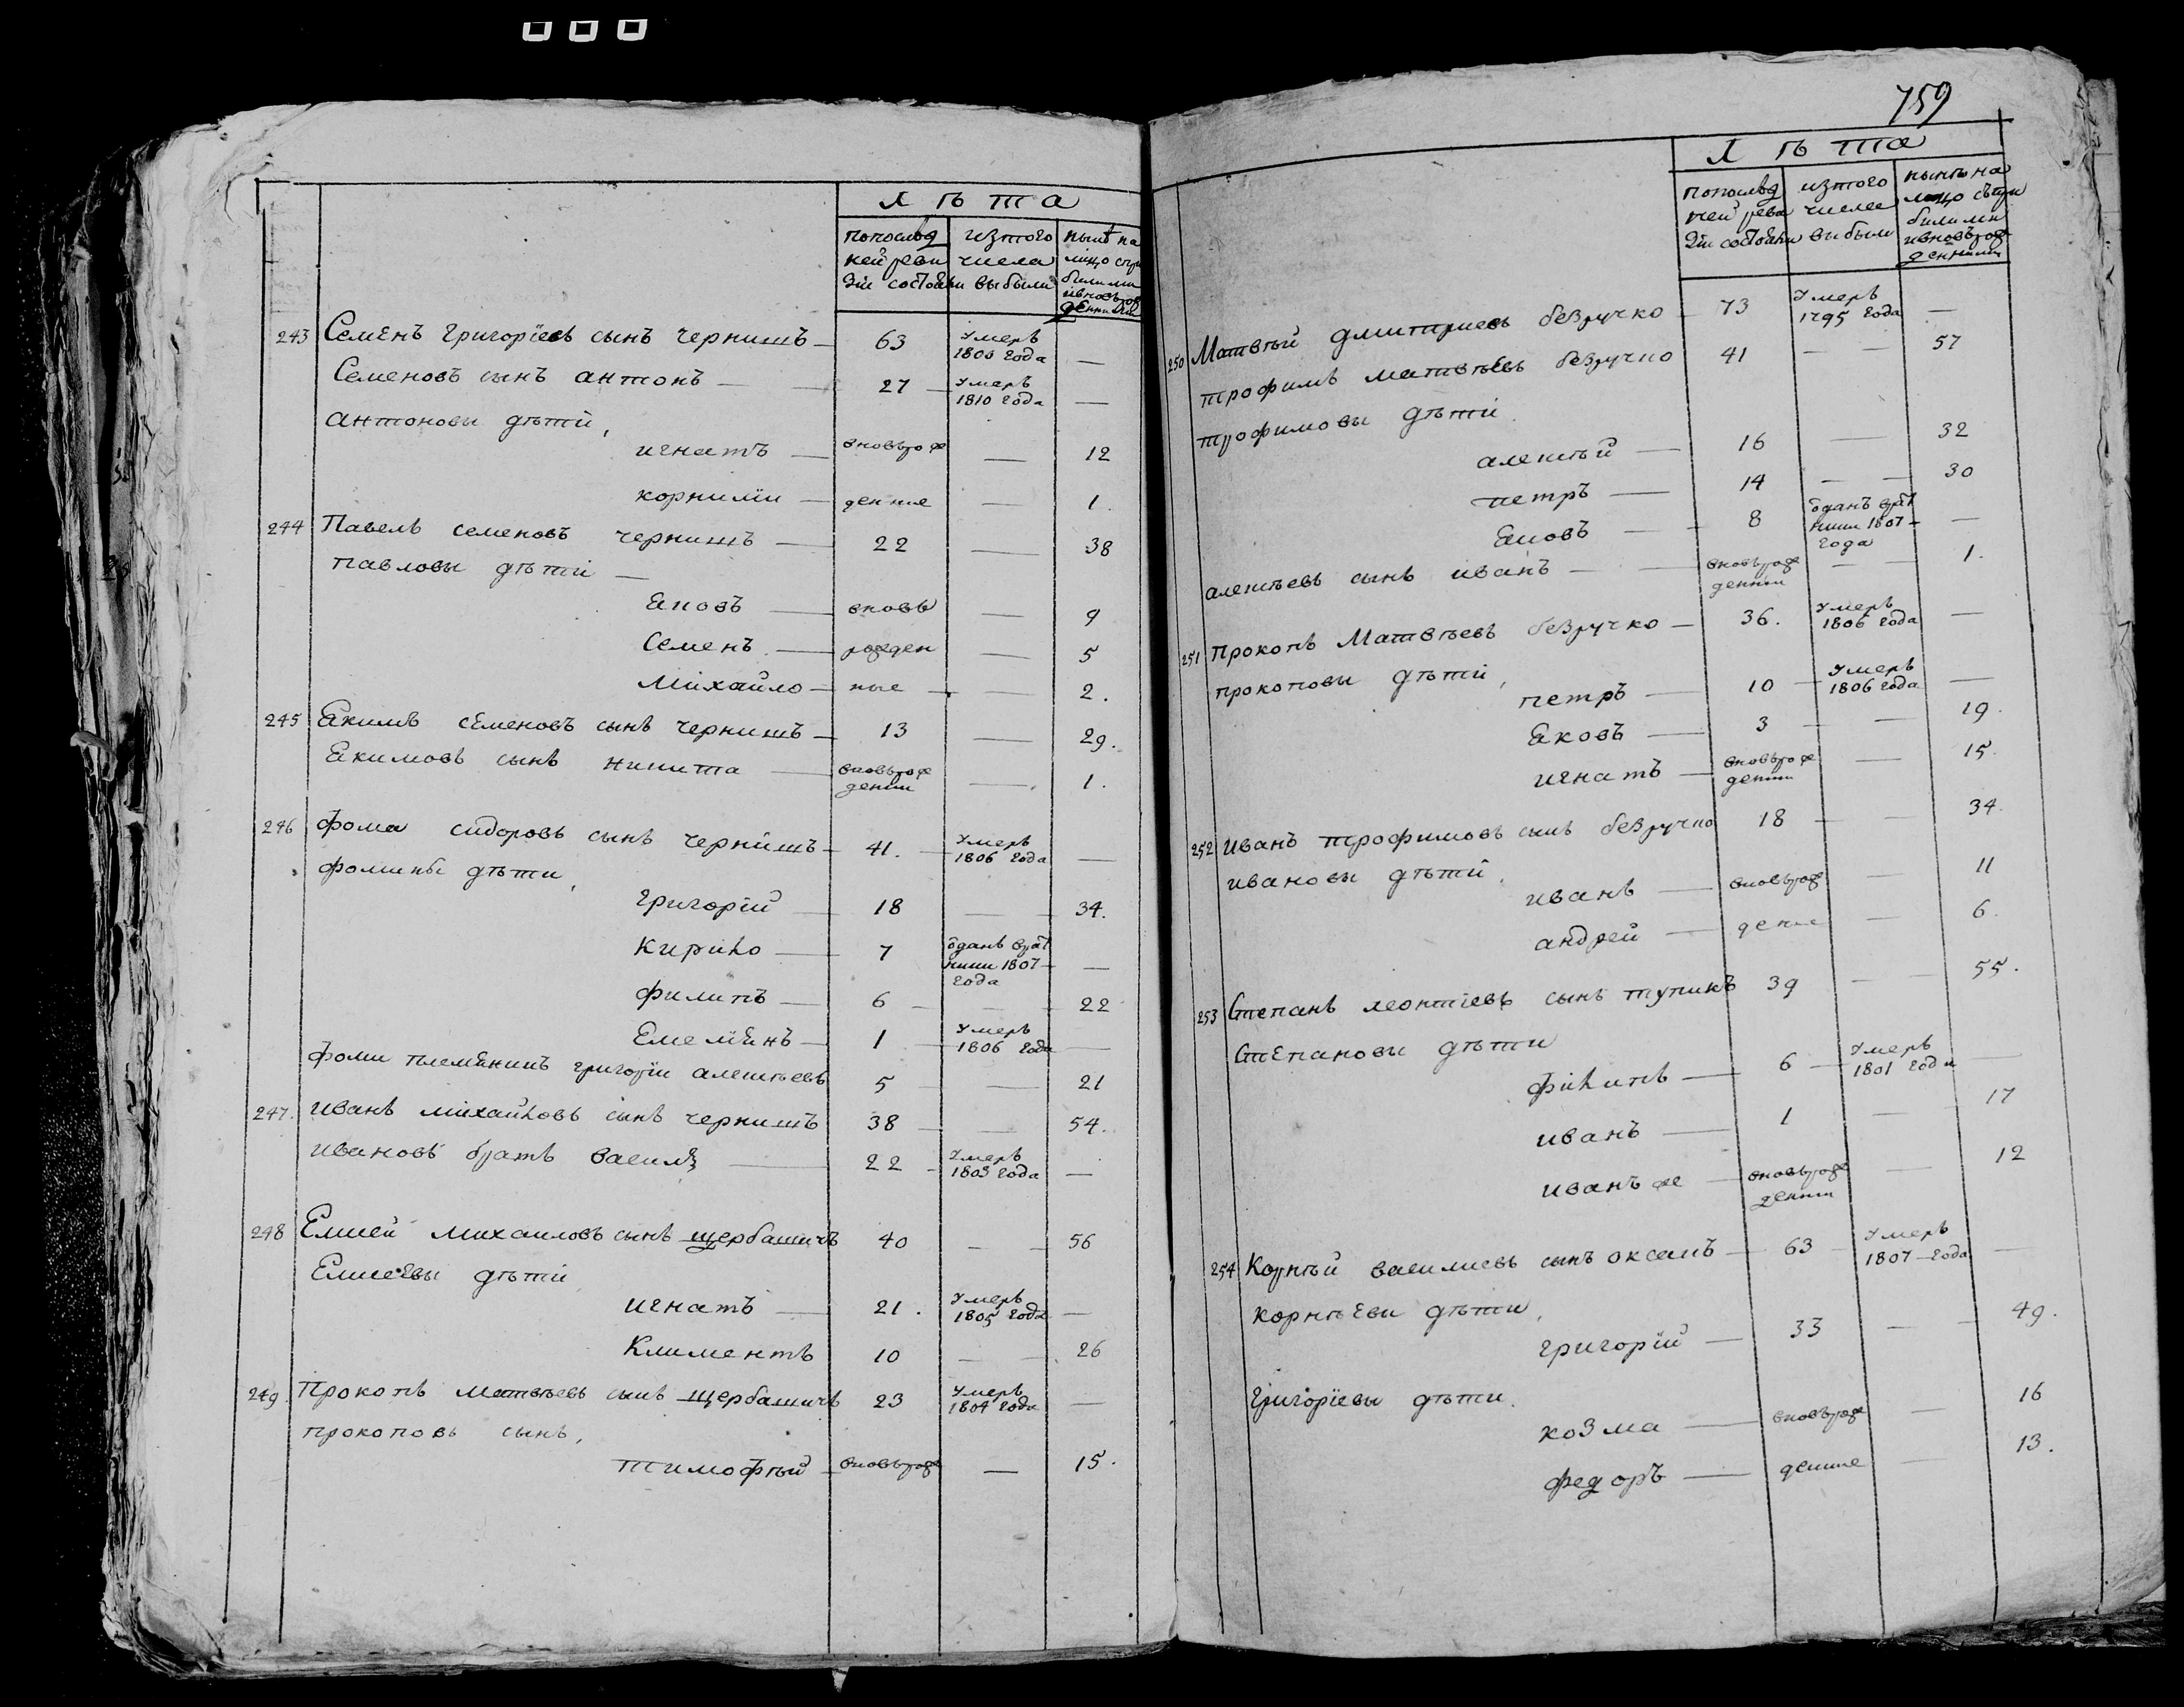 Лѣта
попослѣд изтого нынѣ на
ней реви числа лицо съ при
зіи состояли выбыли былыми
ивновьрож
денными
243 Семенъ григоріевъ сынъ чернишъ — 63 Умеръ 1806 года —
Семеновъ сынъ антонъ — 27 — Умеръ 1810 года —
антоновы дѣти,
игнатъ — вновьрож — 12
корнилiи — денние — 1.
244 Павелъ семеновъ чернишъ — 22 — 38
павловы дѣти —
Яковъ — вновь — 9
Семенъ — рожден — 5
Михайло — ные — 2.
245 Якимъ семеновъ сынъ чернишъ — 13 — 29.
Якимовъ сынъ никита — вновьрож денни — 1.
246 фома сидоровъ сынъ чернишъ — 41. — Умеръ 1806 года —
фомины дѣти,
григорій — 18 — 34.
Кирило — 7 одан врат ники 1807 — года —
филипъ — 6 — 22
Емелянъ — 1 — Умеръ 1806 года —
фоми племянникъ григорiи алексѣевъ 5 — 21
247. иванъ михайловъ сынъ чернишъ 38 — 54.
ивановъ братъ василь — 22 — Умеръ 1803 года —
248 Елисей михаиловъ сынъ щербашичъ 40 — 56
Елисеевы дѣти
игнатъ — 21. Умеръ 1805 года —
Климентъ 10 — 26
249. Прокопъ матвѣевъ сынъ щербашичъ 23 Умеръ 1804 года —
прокоповъ сынъ,
тимофѣй — вновьрож — 15.
759
Лѣта
попослѣд изтого нынѣ на
ней реви числа лицо съ при
зіи состояли выбыли былыми
ивновьрож
денными
250 Матвѣй дмитриевъ безручко — 73 Умеръ 1795 года —
трофимъ матвѣевъ безручко 41 — — 57
трофимовы дѣти
алексѣй — 16 — 32
петръ — 14 — — 30
Яковъ — 8 одан врат ники 1807 — года —
алексѣевъ сынъ иванъ — вновьрож денни — — 1.
251 Прокопъ Матвѣевъ безручко — 36. Умеръ 1806 года —
прокоповы дѣти,
петръ — 10 — Умеръ 1806 года —
Яковъ — 3 — — 19.
игнатъ — вновьрож денни — 15.
252 иванъ трофимовъ сынъ безручко 18 — — 34.
ивановы дѣти,
иванъ — вновьрож — 11
андрей — дение — 6.
253 Степанъ леонтіевъ сынъ тупикъ 39 — 55.
Степановы дѣти
филипъ — 6 — Умеръ 1801 года —
иванъ — 1 — 17
иванъ же — вновьрож денни — 12
254 Корнѣй василиевъ сынъ оксамъ — 63 — Умеръ 1807 — года —
корнѣевы дѣти,
григорій — 33 — — 49.
григоріевы дѣти.
козма — вновьрож — 16
федоръ — денние — 13.